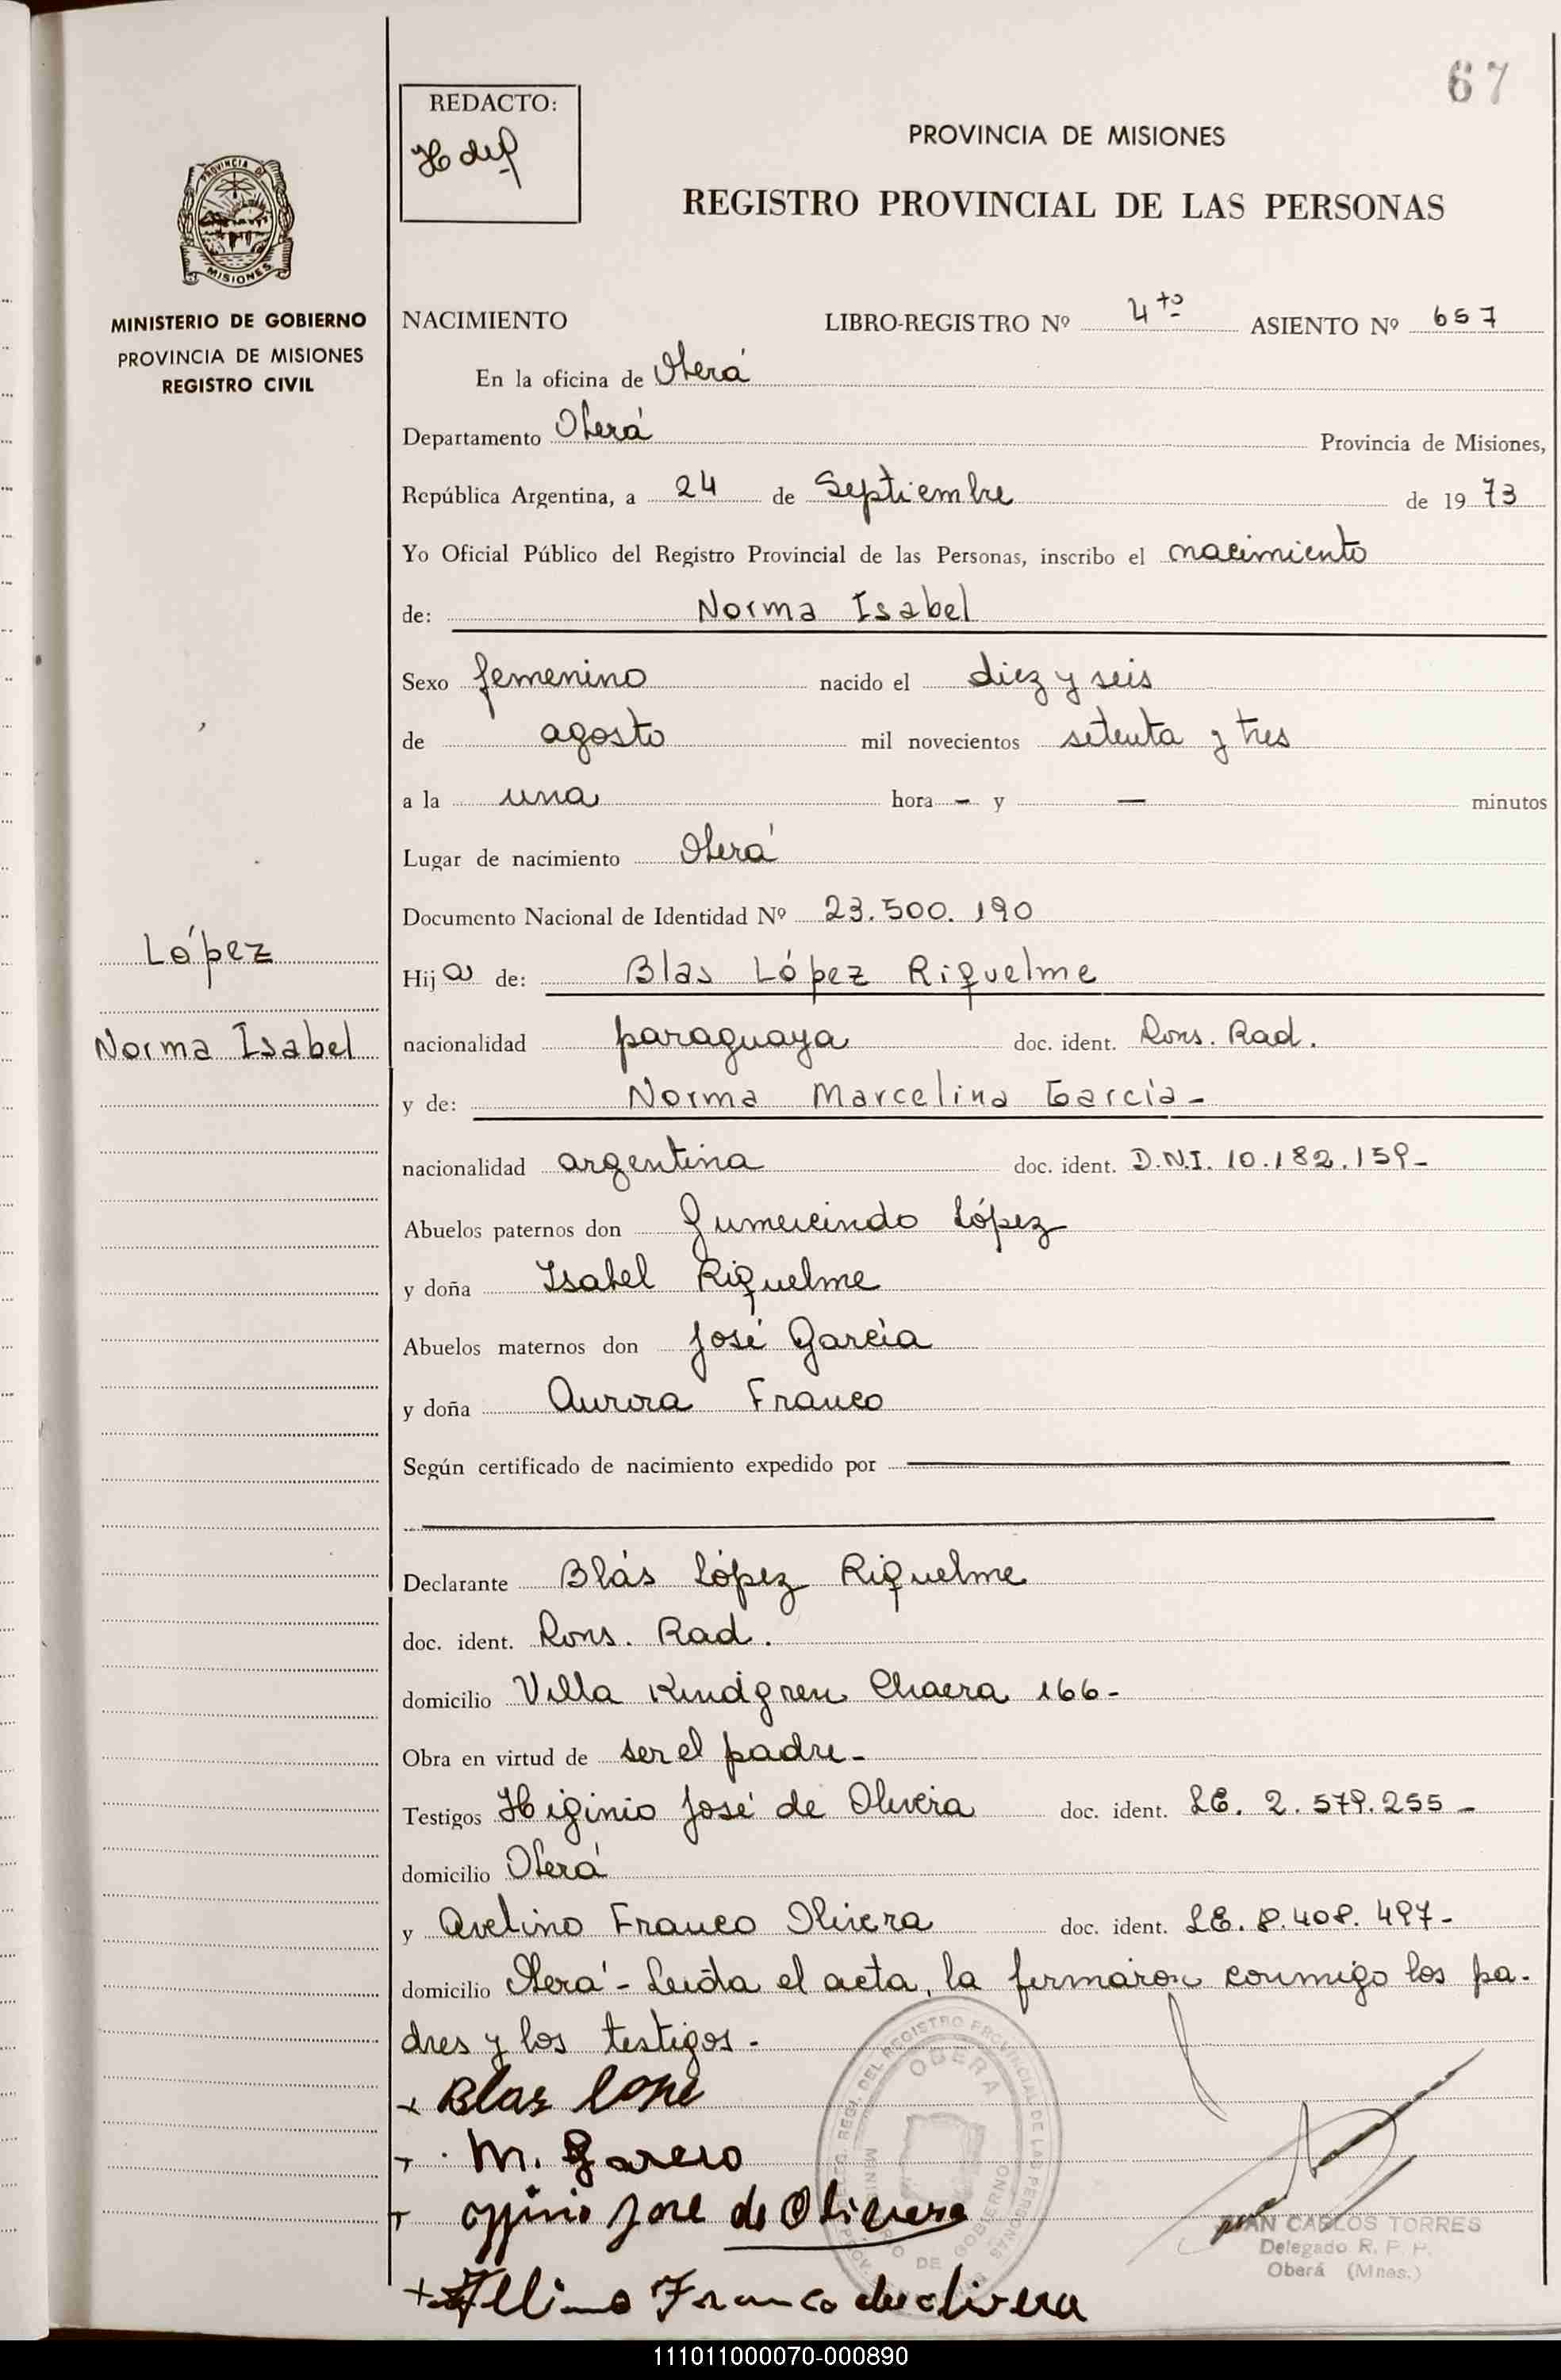 67
REDACTO:
PROVINCIA DE MISIONES
REGISTRO PROVINCIAL DE LAS PERSONAS
PROVINCIA DE
MISIONES
MINISTERIO DE GOBIERNO
PROVINCIA DE MISIONES
REGISTRO CIVIL
NACIMIENTO LIBRO-REGISTRO Nº 4to ASIENTO Nº 657
En la oficina de Oberá
Departamento Oberá Provincia de Misiones,
República Argentina, a 24 de Septiembre de 1973
Yo Oficial Público del Registro Provincial de las Personas, inscribo el nacimiento
de: Norma Isabel
Sexo femenino nacido el diez y seis
de agosto mil novecientos setenta y tres
a la una hora - y - minutos
Lugar de nacimiento Oberá
Documento Nacional de Identidad Nº 23.500.190
López
Hija de: Blas López Riquelme
Norma Isabel
nacionalidad paraguaya doc. ident. Cons. Rad.
y de: Norma Marcelina García -
nacionalidad argentina doc. ident. D.N.I. 10.182.159-
Abuelos paternos don Gumercindo López
y doña Isabel Riquelme
Abuelos maternos don José García
y doña Aurora Franco
Según certificado de nacimiento expedido por
Declarante Blás López Riquelme
doc. ident. Cons. Rad.
domicilio Villa Kindgren Chacra 166-
Obra en virtud de ser el padre-
Testigos Higinio José de Olivera doc. ident. L.E. 2.579.255-
domicilio Oberá
y Avelino Franco Olivera doc. ident. L.E. 8.408.497-
domicilio Oberá - Leída el acta, la firmaron conmigo los pa-
dres y los testigos-
Blas Lope
M. Garcia
José de Olivera
Franco de olivera
OBERA
JUAN CARLOS TORRES
Delegado R. P. P.
Oberá (Mnes.)
111011000070-000890